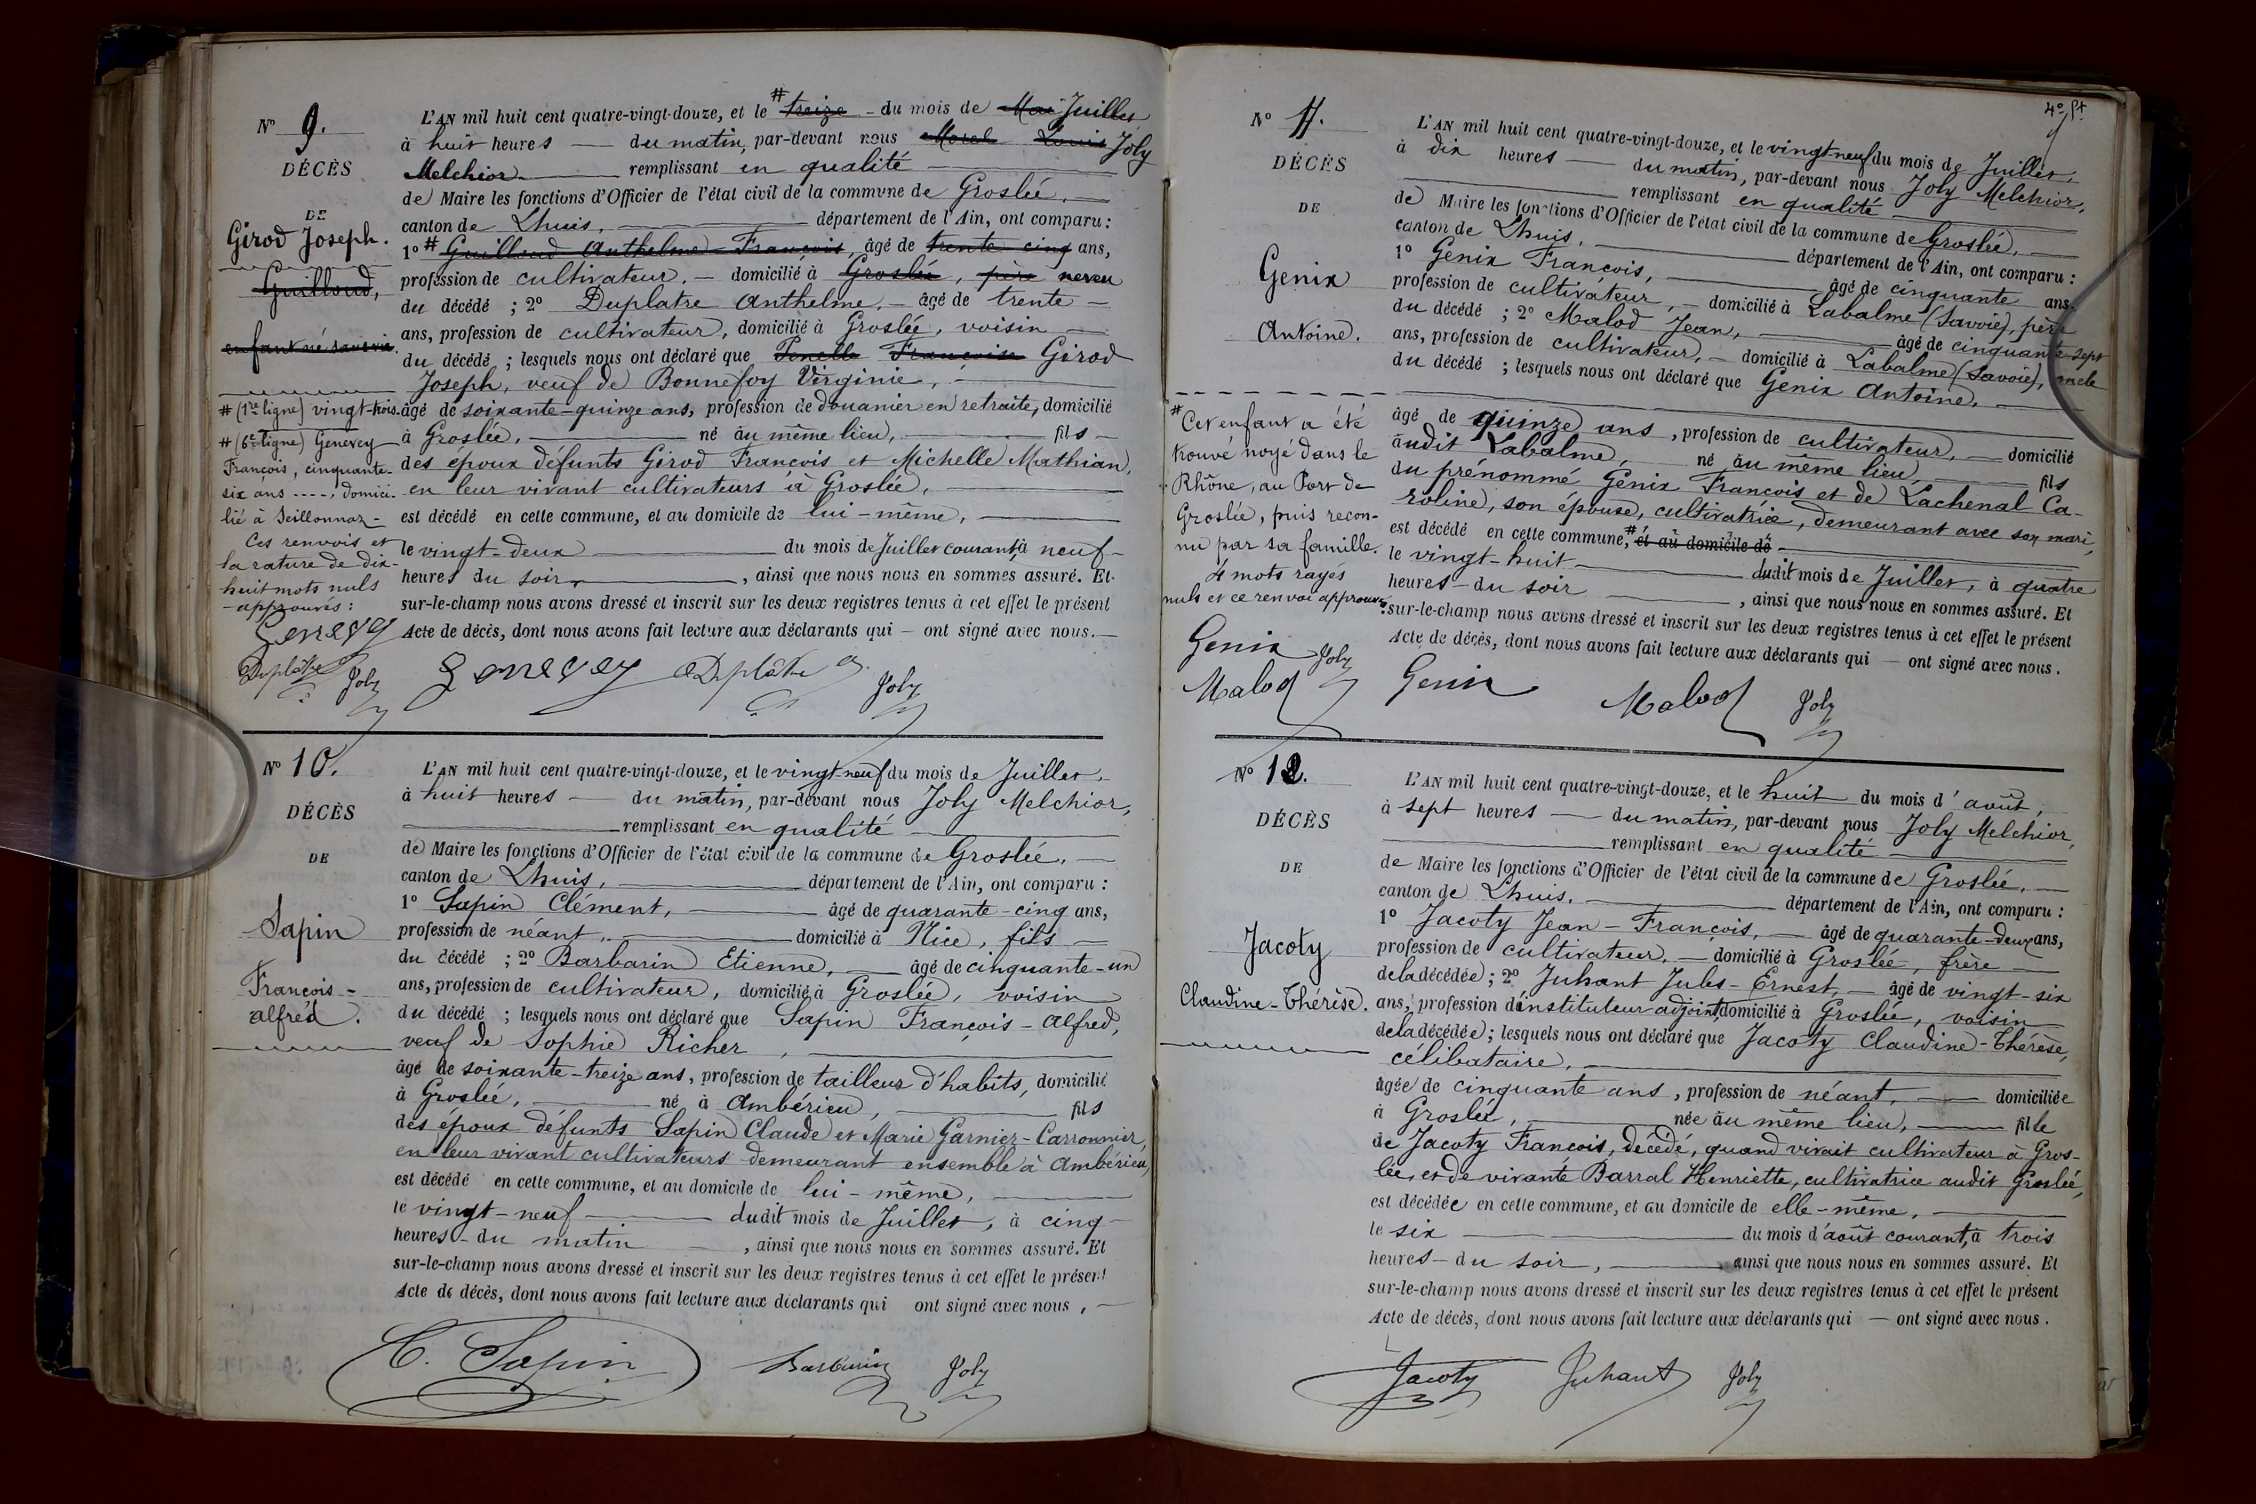 Nº 9.
DÉCÈS
DE
Girod Joseph.
Guilloud,
enfant né sans vie.
# (1re ligne) vingt-trois.
# (6e ligne) Genevey
François, cinquante-
six ans ----, domici-
lié à Seillonnaz -
Ces renvois et
la rature de dix-
huit mots nuls
- approuvés :
Genevey
Duplâtre Joly
L'AN mil huit cent quatre-vingt-douze, et le # treize - du mois de Mai Juillet
à huit heures — du matin, par-devant nous Morel Louis Joly
Melchior. remplissant en qualité
de Maire les fonctions d'Officier de l'état civil de la commune de Groslée.
canton de Lhuis, département de l'Ain, ont comparu :
1º # Guilloud Anthelme François, âgé de trente cinq ans,
profession de cultivateur. — domicilié à Groslée, père neveu
du décédé ; 2º Duplatre Anthelme, — âgé de trente —
ans, profession de cultivateur, domicilié à Groslée, voisin
du décédé ; lesquels nous ont déclaré que Françoise Girod
Joseph, veuf de Bonnefoy Virginie,
âgé de soixante-quinze ans, profession de douanier en retraite, domicilié
à Groslée, né au même lieu, fils
des époux défunts Girod François et Michelle Mathian,
en leur vivant cultivateurs à Groslée,
est décédé en cette commune, et au domicile de lui-même,
le vingt-deux du mois de Juillet courant, à neuf
heures du soir, , ainsi que nous nous en sommes assuré. Et
sur-le-champ nous avons dressé et inscrit sur les deux registres tenus à cet effet le présent
Acte de décès, dont nous avons fait lecture aux déclarants qui — ont signé avec nous.
Genevey Duplâtre Joly
Nº 10.
DÉCÈS
DE
Sapin
François-
Alfred.
L'AN mil huit cent quatre-vingt-douze, et le vingt-neuf du mois de Juillet,
à huit heures — du matin, par-devant nous Joly Melchior,
remplissant en qualité
de Maire les fonctions d'Officier de l'état civil de la commune de Groslée,
canton de Lhuis, département de l'Ain, ont comparu :
1º Sapin Clément, âgé de quarante-cinq ans,
profession de néant, domicilié à Nice, fils
du décédé ; 2º Barbarin Etienne, — âgé de cinquante-un
ans, profession de cultivateur, domicilié à Groslée, voisin
du décédé ; lesquels nous ont déclaré que Sapin François-Alfred,
veuf de Sophie Richer,
âgé de soixante-treize ans, profession de tailleur d'habits, domicilié
à Groslée, né à Ambérieu, fils
des époux défunts Sapin Claude et Marie Garnier-Carronnier,
en leur vivant cultivateurs demeurant ensemble à Ambérieu,
est décédé en cette commune, et au domicile de lui-même,
le vingt-neuf dudit mois de Juillet, à cinq
heures du matin , ainsi que nous nous en sommes assuré. Et
sur-le-champ nous avons dressé et inscrit sur les deux registres tenus à cet effet le présent
Acte de décès, dont nous avons fait lecture aux déclarants qui ont signé avec nous,
C. Sapin Barbarin Joly
Nº 11.
DÉCÈS
DE
Genix
Antoine.
# Cet enfant a été
trouvé noyé dans le
Rhône, au Port de
Groslée, puis recon-
nu par sa famille.
4 mots rayés
nuls et ce renvoi approuvés.
Genix Joly
Malod
L'AN mil huit cent quatre-vingt-douze, et le vingt-neuf du mois de Juillet,
à dix heures — du matin, par-devant nous Joly Melchior,
remplissant en qualité
de Maire les fonctions d'Officier de l'état civil de la commune de Groslée,
canton de Lhuis, département de l'Ain, ont comparu :
1º Genix François, âgé de cinquante ans,
profession de cultivateur, — domicilié à Labalme (Savoie), père
du décédé ; 2º Malod Jean, âgé de cinquante-sept
ans, profession de cultivateur, — domicilié à Labalme (Savoie), oncle
du décédé ; lesquels nous ont déclaré que Genix Antoine,
âgé de quinze ans, profession de cultivateur, — domicilié
audit Labalme, né au même lieu, fils
du prénommé Genix François et de Lachenal Ca-
roline, son épouse, cultivatrice, demeurant avec son mari,
est décédé en cette commune, # et au domicile de
le vingt-huit dudit mois de Juillet, à quatre
heures du soir , ainsi que nous nous en sommes assuré. Et
sur-le-champ nous avons dressé et inscrit sur les deux registres tenus à cet effet le présent
Acte de décès, dont nous avons fait lecture aux déclarants qui — ont signé avec nous.
Genix Malod Joly
Nº 12.
DÉCÈS
DE
Jacoty
Claudine-Thérèse.
L'AN mil huit cent quatre-vingt-douze, et le huit du mois d'août,
à sept heures — du matin, par-devant nous Joly Melchior,
remplissant en qualité
de Maire les fonctions d'Officier de l'état civil de la commune de Groslée,
canton de Lhuis, département de l'Ain, ont comparu :
1º Jacoty Jean-François, — âgé de quarante-deux ans,
profession de cultivateur, — domicilié à Groslée, frère
de la décédée ; 2º Juhant Jules-Ernest, — âgé de vingt-six
ans, profession d'instituteur adjoint, domicilié à Groslée, voisin
de la décédée ; lesquels nous ont déclaré que Jacoty Claudine-Thérèse,
célibataire,
âgée de cinquante ans, profession de néant, domiciliée
à Groslée, née au même lieu, fille
de Jacoty François, décédé, quand vivait cultivateur à Gros-
lée, et de vivante Barral Henriette, cultivatrice audit Groslée,
est décédée en cette commune, et au domicile de elle-même,
le six du mois d'août courant, à trois
heures du soir, ainsi que nous nous en sommes assuré. Et
sur-le-champ nous avons dressé et inscrit sur les deux registres tenus à cet effet le présent
Acte de décès, dont nous avons fait lecture aux déclarants qui — ont signé avec nous.
Jacoty Juhant Joly